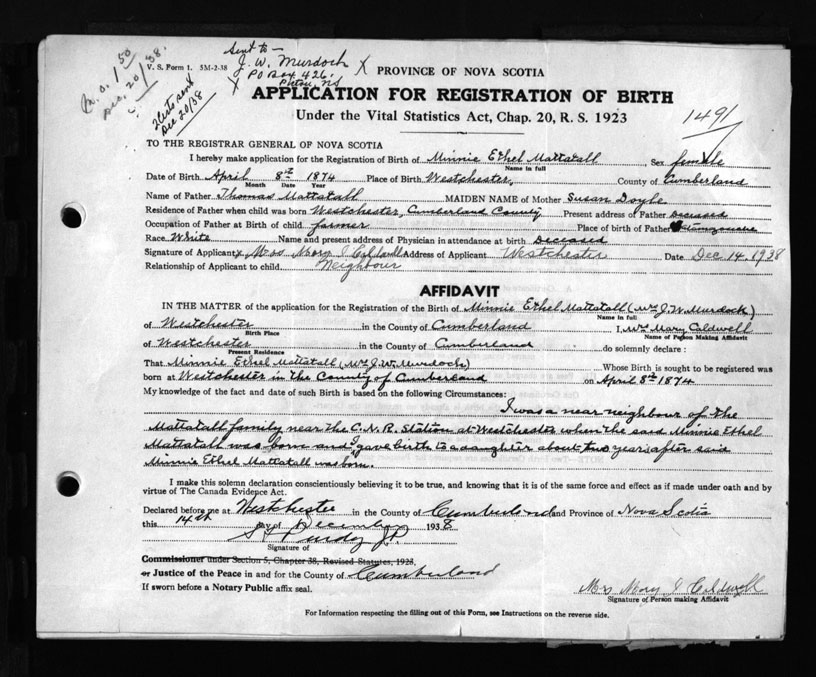 M.O. 1.50
Dec. 20/38.
V. S. Form 1. 5M-2-38
Sent to —
J. W. Murdoch X
X PO Box 426.
Pictou, NS
Dec 20/38
PROVINCE OF NOVA SCOTIA
APPLICATION FOR REGISTRATION OF BIRTH
Under the Vital Statistics Act, Chap. 20, R. S. 1923
1491
TO THE REGISTRAR GENERAL OF NOVA SCOTIA
I hereby make application for the Registration of Birth of Minnie Ethel Mattatall Sex female
Name in full
Date of Birth April 8th 1874 Place of Birth Westchester, County of Cumberland
Month Date Year
Name of Father Thomas Mattatall MAIDEN NAME of Mother Susan Doyle
Residence of Father when child was born Westchester, Cumberland County Present address of Father Deceased
Occupation of Father at Birth of child farmer Place of birth of Father
Race White Name and present address of Physician in attendance at birth Deceased
Signature of Applicant x Mrs Mary J Caldwell Address of Applicant Westchester Date Dec 14, 1938
Relationship of Applicant to child Neighbour
AFFIDAVIT
IN THE MATTER of the application for the Registration of the Birth of Minnie Ethel Mattatall (Mrs J. W. Murdock)
Name in full
of Westchester in the County of Cumberland I, Mrs Mary Caldwell
Birth Place Name of Person Making Affidavit
of Westchester in the County of Cumberland do solemnly declare :
Present Residence
That Minnie Ethel Mattatall (Mrs J. W. Murdock) Whose Birth is sought to be registered was
born at Westchester in the County of Cumberland on April 8th 1874
My knowledge of the fact and date of such Birth is based on the following Circumstances:
I was a near neighbour of the
Mattatall family near the C.N.R. Station at Westchester when the said Minnie Ethel
Mattatall was born and I gave birth to a daughter about two years after said
Minnie Ethel Mattatall was born.
I make this solemn declaration conscientiously believing it to be true, and knowing that it is of the same force and effect as if made under oath and by
virtue of The Canada Evidence Act.
Declared before me at Westchester in the County of Cumberland and Province of Nova Scotia
this 14th day of December 1938
Purdy J.P.
Signature of
Commissioner under Section 5, Chapter 38, Revised Statutes, 1923,
or Justice of the Peace in and for the County of Cumberland
If sworn before a Notary Public affix seal.
Mrs Mary J Caldwell
Signature of Person making Affidavit
For Information respecting the filling out of this Form, see Instructions on the reverse side.